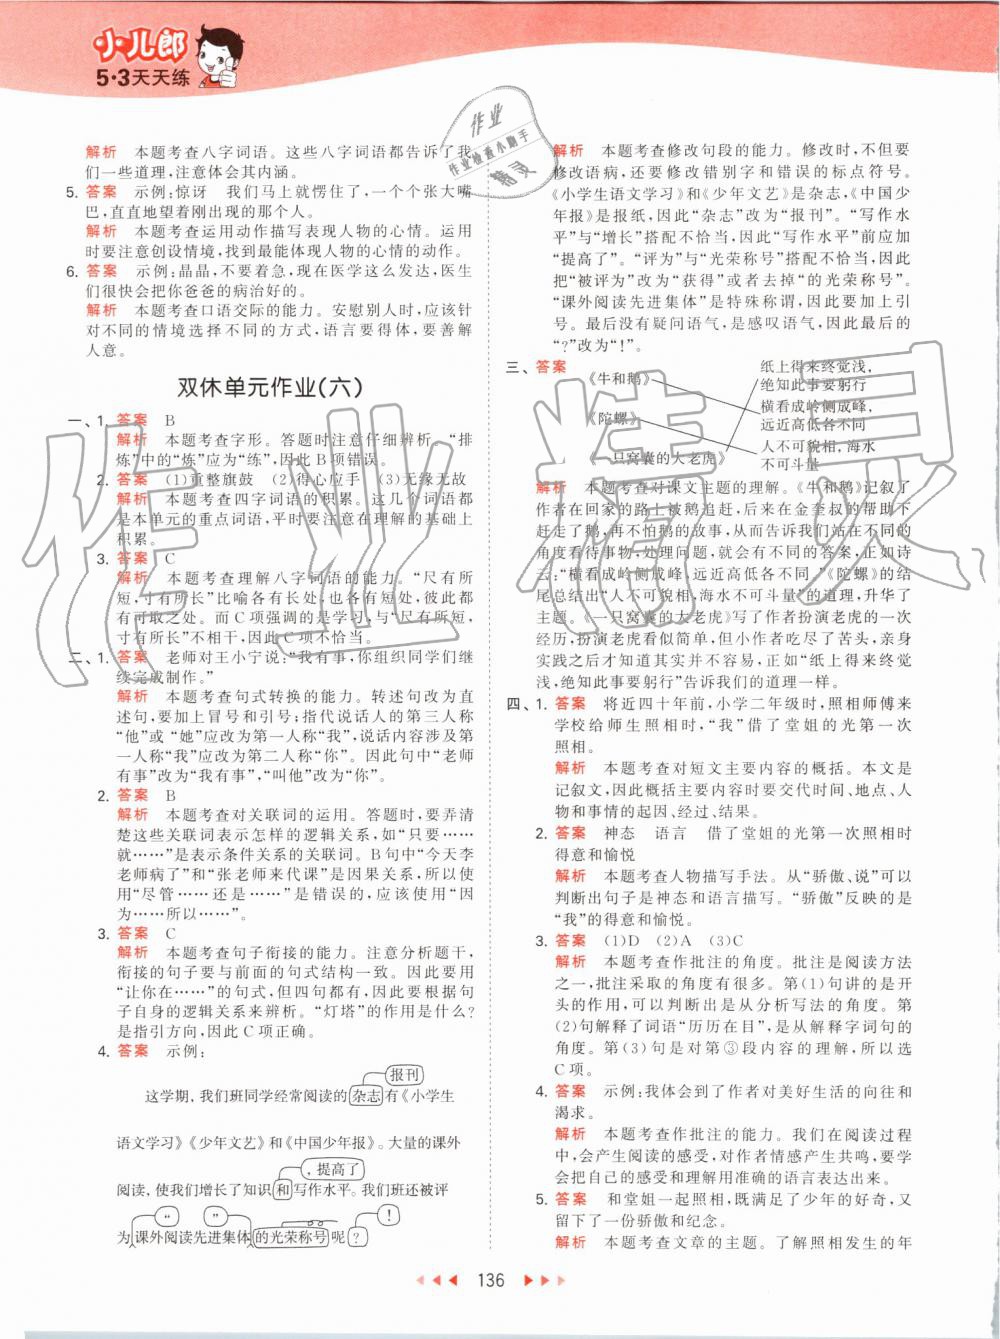 小儿郎
5·3天天练
解析 本题考查八字词语。这些八字词语都告诉了我
们一些道理,注意体会其内涵。
5. 答案 示例:惊讶 我们马上就愣住了,一个个张大嘴
巴,直直地望着刚出现的那个人。
解析 本题考查运用动作描写表现人物的心情。运用
时要注意创设情境,找到最能体现人物的心情的动作。
6. 答案 示例:晶晶,不要着急,现在医学这么发达,医生
们很快会把你爸爸的病治好的。
解析 本题考查口语交际的能力。安慰别人时,应该针
对不同的情境选择不同的方式,语言要得体,要善解
人意。
双休单元作业(六)
一、1. 答案 B
解析 本题考查字形。答题时注意仔细辨析。“排
炼”中的“炼”应为“练”,因此B项错误。
2. 答案 (1)重整旗鼓 (2)得心应手 (3)无缘无故
解析 本题考查四字词语的积累。这几个词语都
是本单元的重点词语,平时要注意在理解的基础上
积累。
3. 答案 C
解析 本题考查理解八字词语的能力。“尺有所
短,寸有所长”比喻各有长处,也各有短处,彼此都
有可取之处。而C项强调的是学习,与“尺有所短,
寸有所长”不相干,因此C项不恰当。
二、1. 答案 老师对王小宁说:“我有事,你组织同学们继
续完成制作。”
解析 本题考查句式转换的能力。转述句改为直
述句,要加上冒号和引号;指代说话人的第三人称
“他”或“她”应改为第一人称“我”,说话内容涉及第
一人称“我”应改为第二人称“你”。因此句中“老师
有事”改为“我有事”,“叫他”改为“你”。
2. 答案 B
解析 本题考查对关联词的运用。答题时,要弄清
楚这些关联词表示怎样的逻辑关系,如“只要……
就……”是表示条件关系的关联词。B句中“今天李
老师病了”和“张老师来代课”是因果关系,所以
使用“尽管……还是……”是错误的,应该使用“因
为……所以……”。
3. 答案 C
解析 本题考查句子衔接的能力。注意分析题干,
衔接的句子要与前面的句式结构一致。因此要用
“让你在……”的句式,但四句都有,因此要根据
句子自身的逻辑关系来辨析。“灯塔”的作用是什么?
是指引方向,因此C项正确。
4. 答案 示例:
报刊
这学期,我们班同学经常阅读的杂志有《小学生
语文学习》《少年文艺》和《中国少年报》。大量的课外
,提高了
阅读,使我们增长了知识和写作水平。我们班还被评
“ ” !
为课外阅读先进集体的光荣称号呢?
解析 本题考查修改句段的能力。修改时,不但要
修改语病,还要修改错别字和错误的标点符号。
《小学生语文学习》和《少年文艺》是杂志,《中国少
年报》是报纸,因此“杂志”改为“报刊”。“写作水
平”与“增长”搭配不恰当,因此“写作水平”前应加
“提高了”。“评为”与“光荣称号”搭配不恰当,因此
把“被评为”改为“获得”或者去掉“的光荣称号”。
“课外阅读先进集体”是特殊称谓,因此要加上引
号。最后没有疑问语气,是感叹语气,因此最后的
“?”改为“!”。
三、答案
《牛和鹅》
《陀螺》
《一只窝囊的大老虎》
纸上得来终觉浅,
绝知此事要躬行
横看成岭侧成峰,
远近高低各不同
人不可貌相,海水
不可斗量
解析 本题考查对课文主题的理解。《牛和鹅》记叙了
作者在回家的路上被鹅追赶,后来在金奎叔的帮助下
赶走了鹅,再不怕鹅的故事,从而告诉我们站在不同的
角度看待事物,处理问题,就会有不同的答案,正如诗
云:“横看成岭侧成峰,远近高低各不同。”《陀螺》的结
尾总结出“人不可貌相,海水不可斗量”的道理,升华了
主题。《一只窝囊的大老虎》写了作者扮演老虎的一次
经历,扮演老虎看似简单,但小作者吃尽了苦头,亲身
实践之后才知道其实并不容易,正如“纸上得来终觉
浅,绝知此事要躬行”告诉我们的道理一样。
四、1. 答案 将近四十年前,小学二年级时,照相师傅来
学校给师生照相时,“我”借了堂姐的光第一次
照相。
解析 本题考查对短文主要内容的概括。本文是
记叙文,因此概括主要内容时要交代时间、地点、人
物和事情的起因、经过、结果。
2. 答案 神态 语言 借了堂姐的光第一次照相时
得意和愉悦
解析 本题考查人物描写手法。从“骄傲、说”可以
判断出句子是神态和语言描写。“骄傲”反映的是
“我”的得意和愉悦。
3. 答案 (1)D (2)A (3)C
解析 本题考查作批注的角度。批注是阅读方法
之一,批注采取的角度有很多。第(1)句讲的是开
头的作用,可以判断出是从分析写法的角度。第
(2)句解释了词语“历历在目”,是从解释字词句的
角度。第(3)句是对第③段内容的理解,所以选
C项。
4. 答案 示例:我体会到了作者对美好生活的向往和
渴求。
解析 本题考查作批注的能力。我们在阅读过程
中,会产生阅读的感受,对作者情感产生共鸣,要学
会把自己的感受和理解用准确的语言表达出来。
5. 答案 和堂姐一起照相,既满足了少年的好奇,又
留下了一份骄傲和纪念。
解析 本题考查文章的主题。了解照相发生的年
136
作业
作业检查小助手
精灵
作业精灵